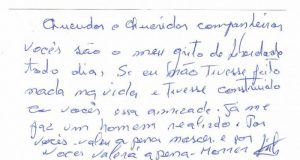 Queridos e Queridas companheiras
Vocês são o meu grito de liberdade
todo dia, Se eu não tivesse feito
nada na vida e tivesse construido
com vocês essa amizade. Já me
faz um homem realizado. Por
vocês valeu a pena nascer e por
Vocês valera a pena. Morrer